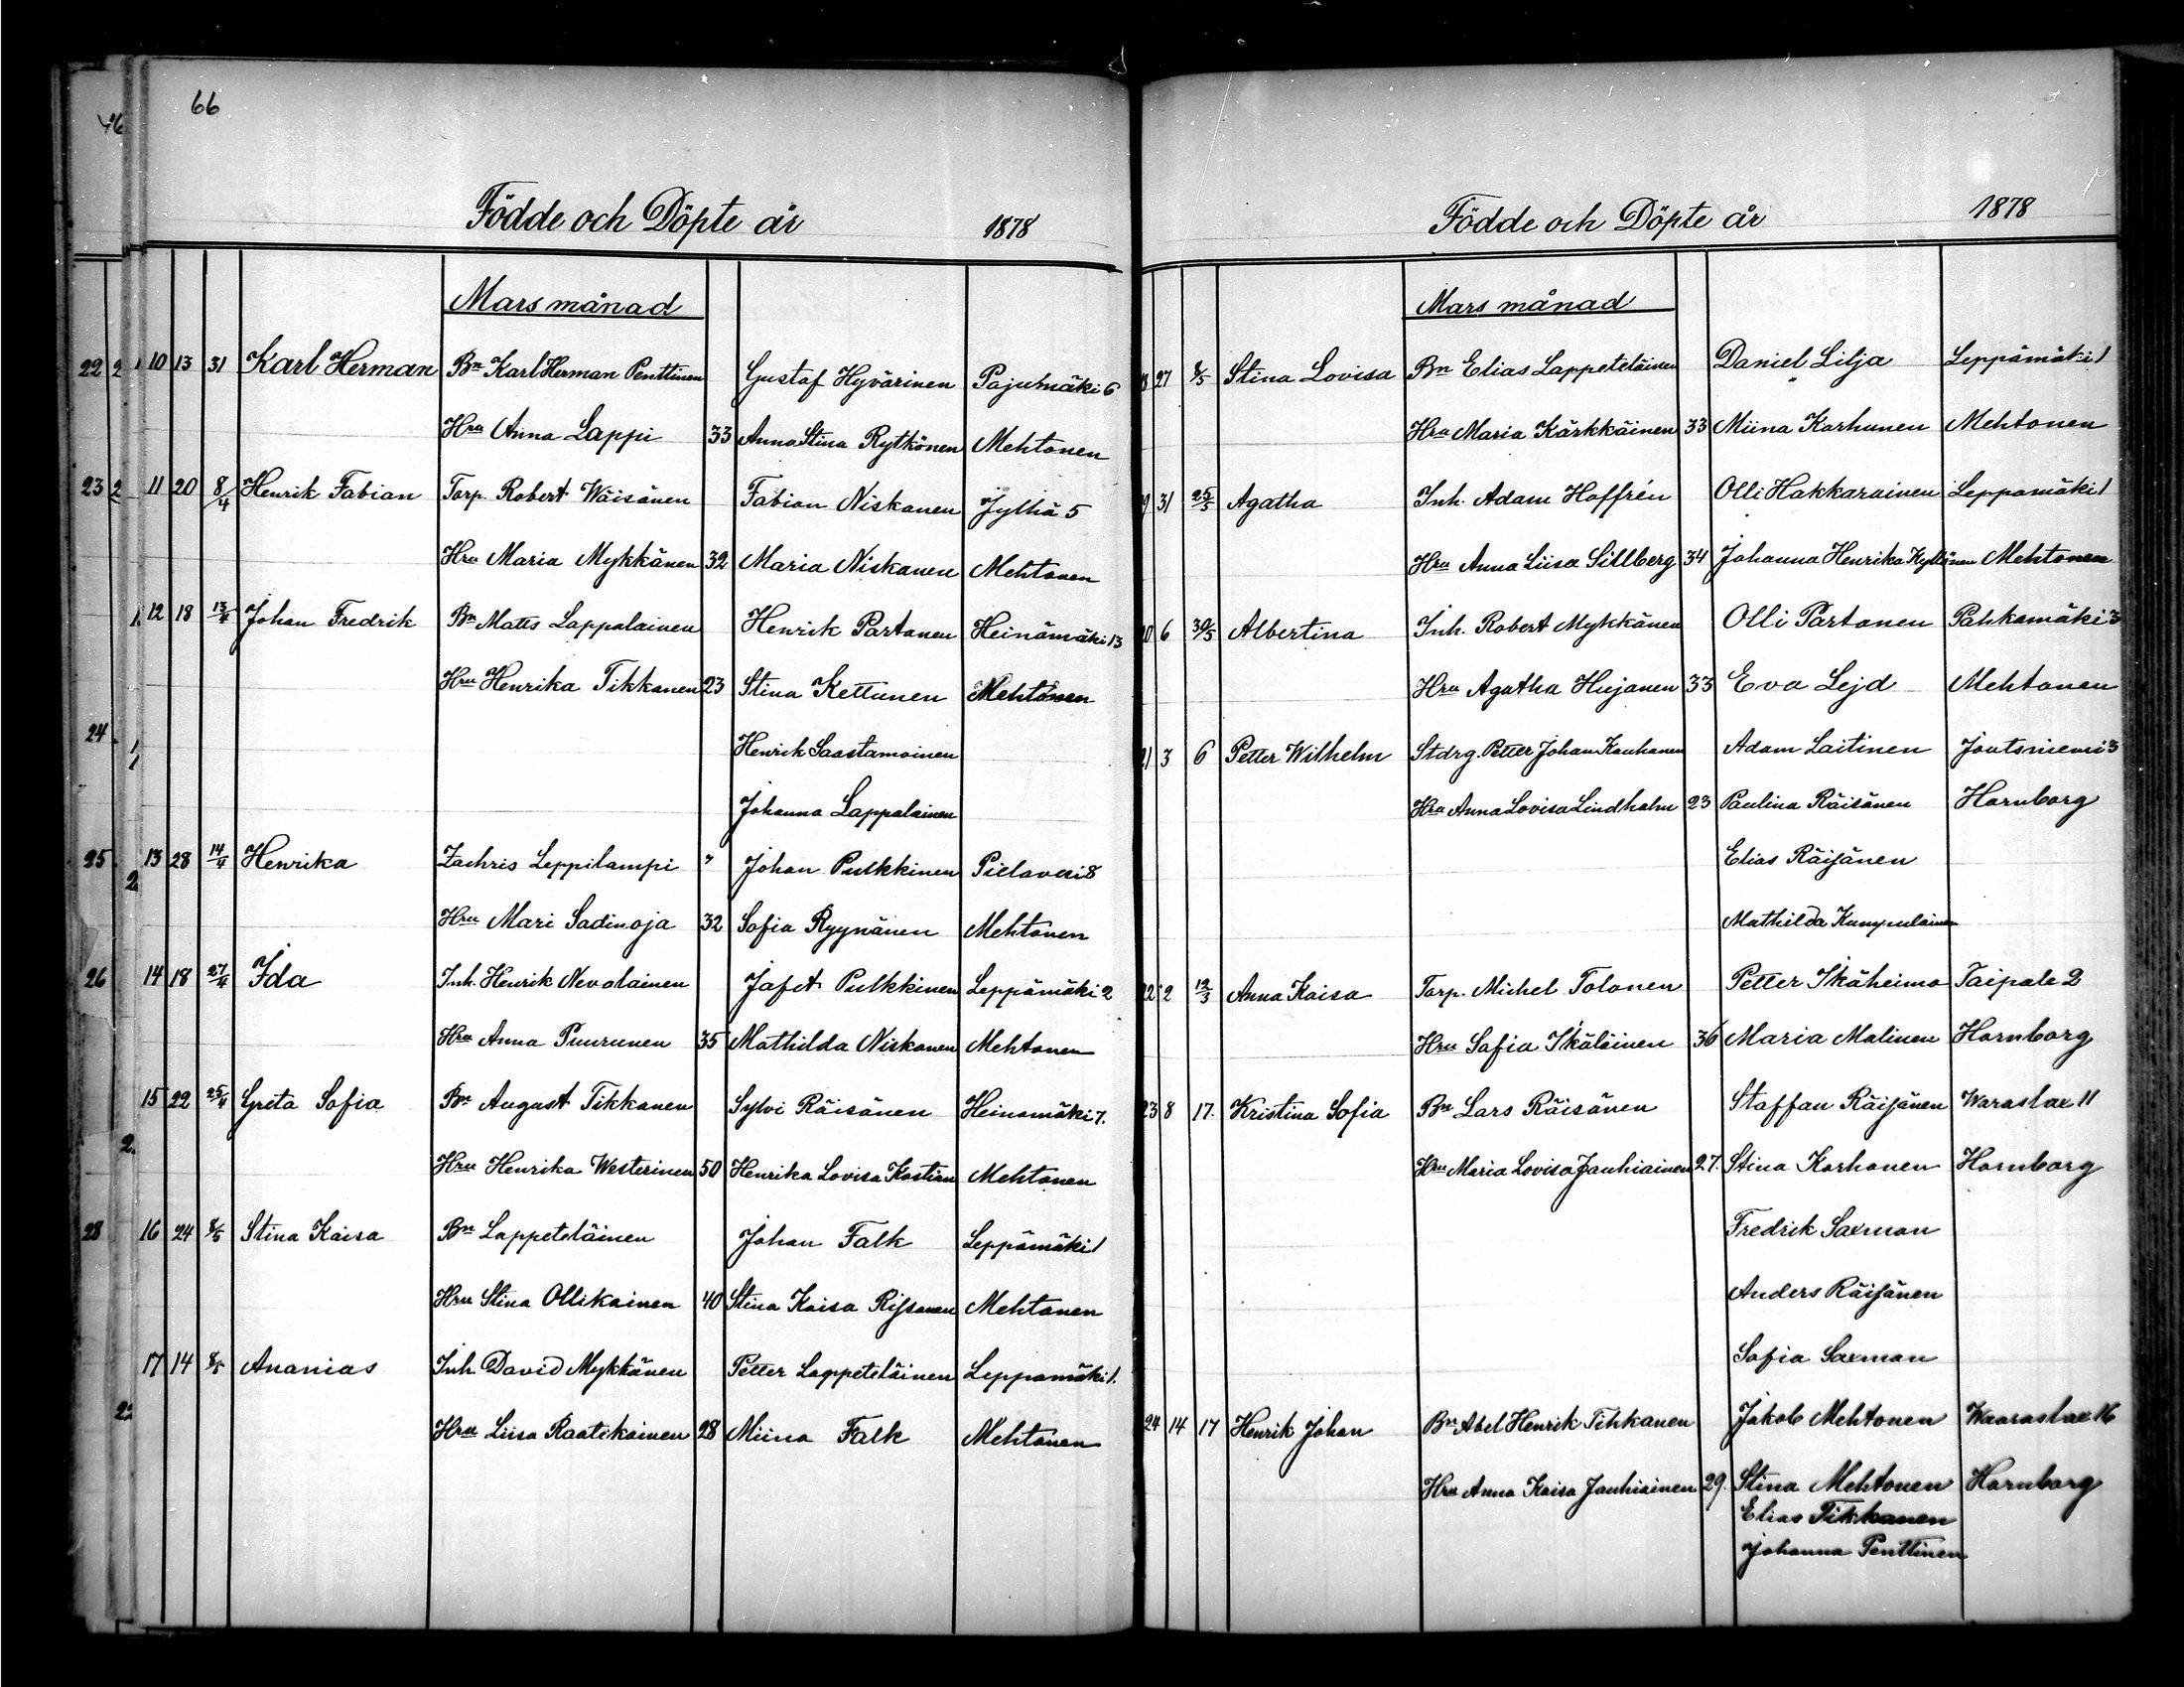 66
Födde och Döpte år 1878
Mars månad
10 13 31 Karl Herman Bn Karl Herman Penttinen Gustaf Hyvärinen Pajumäki 6
Hru Anna Lappi 33 Anna Stina Rytkönen Mehtonen
11 20 8/4 Henrik Fabian Torp. Robert Wäisänen Fabian Niskanen Jylhä 5
Hru Maria Mykkänen 32 Maria Niskanen Mehtonen
12 18 13/4 Johan Fredrik Bn Matts Lappalainen Henrik Partanen Heinämäki 13
Hru Henrika Tikkanen 23 Stina Kettunen Mehtonen
Henrik Saastamoinen
Johanna Lappalainen
13 28 14/4 Henrika Zachris Leppilampi " Johan Pulkkinen Pielavesi 8
Hru Mari Sadinoja 32 Sofia Ryynänen Mehtonen
14 18 27/4 Ida Inh. Henrik Nevalainen Jafet Pulkkinen Leppämäki 2
Hru Anna Puurunen 35 Mathilda Niskanen Mehtonen
15 22 25/4 Greta Sofia Bn August Tikkanen Sylvi Räisänen Heinamäki 7.
Hru Henrika Westerinen 50 Henrika Lovisa Kostian Mehtonen
16 24 8/5 Stina Kaisa Bn Lappeteläinen Johan Falk Leppämäki 1
Hru Stina Ollikainen 40 Stina Kaisa Rissanen Mehtonen
17 14 8/5 Ananias Inh. David Mykkänen Petter Lappeteläinen Leppamäki 1.
Hru Liisa Raatikainen 28 Miina Falk Mehtonen
Födde och Döpte år 1878
Mars månad
8 27 8/5 Stina Lovisa Bn Elias Lappeteläinen Daniel Lilja Leppämäki 1
Hru Maria Kärkkäinen 33 Miina Karhunen Mehtonen
9 31 25/5 Agatha Inh. Adam Hoffrén Olli Hakkarainen Leppamäki 1
Hru Anna Liisa Sillberg 34 Johanna Henrika Kyllönen Mehtonen
6 30/5 Albertina Inh. Robert Mykkänen Olli Partanen Pahkamäki 3
Hru Agatha Hujanen 33 Eva Lejd Mehtonen
21 3 6 Petter Wilhelm Stdrg. Petter Johan Kauhanen Adam Laitinen Joutsniemi 3
Hru Anna Lovisa Lindholm 23 Paulina Räisänen Hornborg
Elias Räisänen
Mathilda Kumpulainen
22 2 12/3 Anna Kaisa Torp. Michel Tolonen Petter Ikäheimo Taipale 2
Hru Sofia Ikäläinen 36 Maria Malinen Hornborg
23 8 17. Kristina Sofia Bn Lars Räisänen Staffan Räisänen Waraslax 11
Hru Maria Lovisa Jauhiainen 27. Stina Korhonen Hornborg
Fredrik Saxman
Anders Räisänen
Sofia Saxman
24 14 17 Henrik Johan Bn Abel Henrik Tikkanen Jakob Mehtonen Waaraslax 16
Hru Anna Kaisa Jauhiainen 29. Stina Mehtonen Hornborg
Elias Tikkanen
Johanna Penttinen